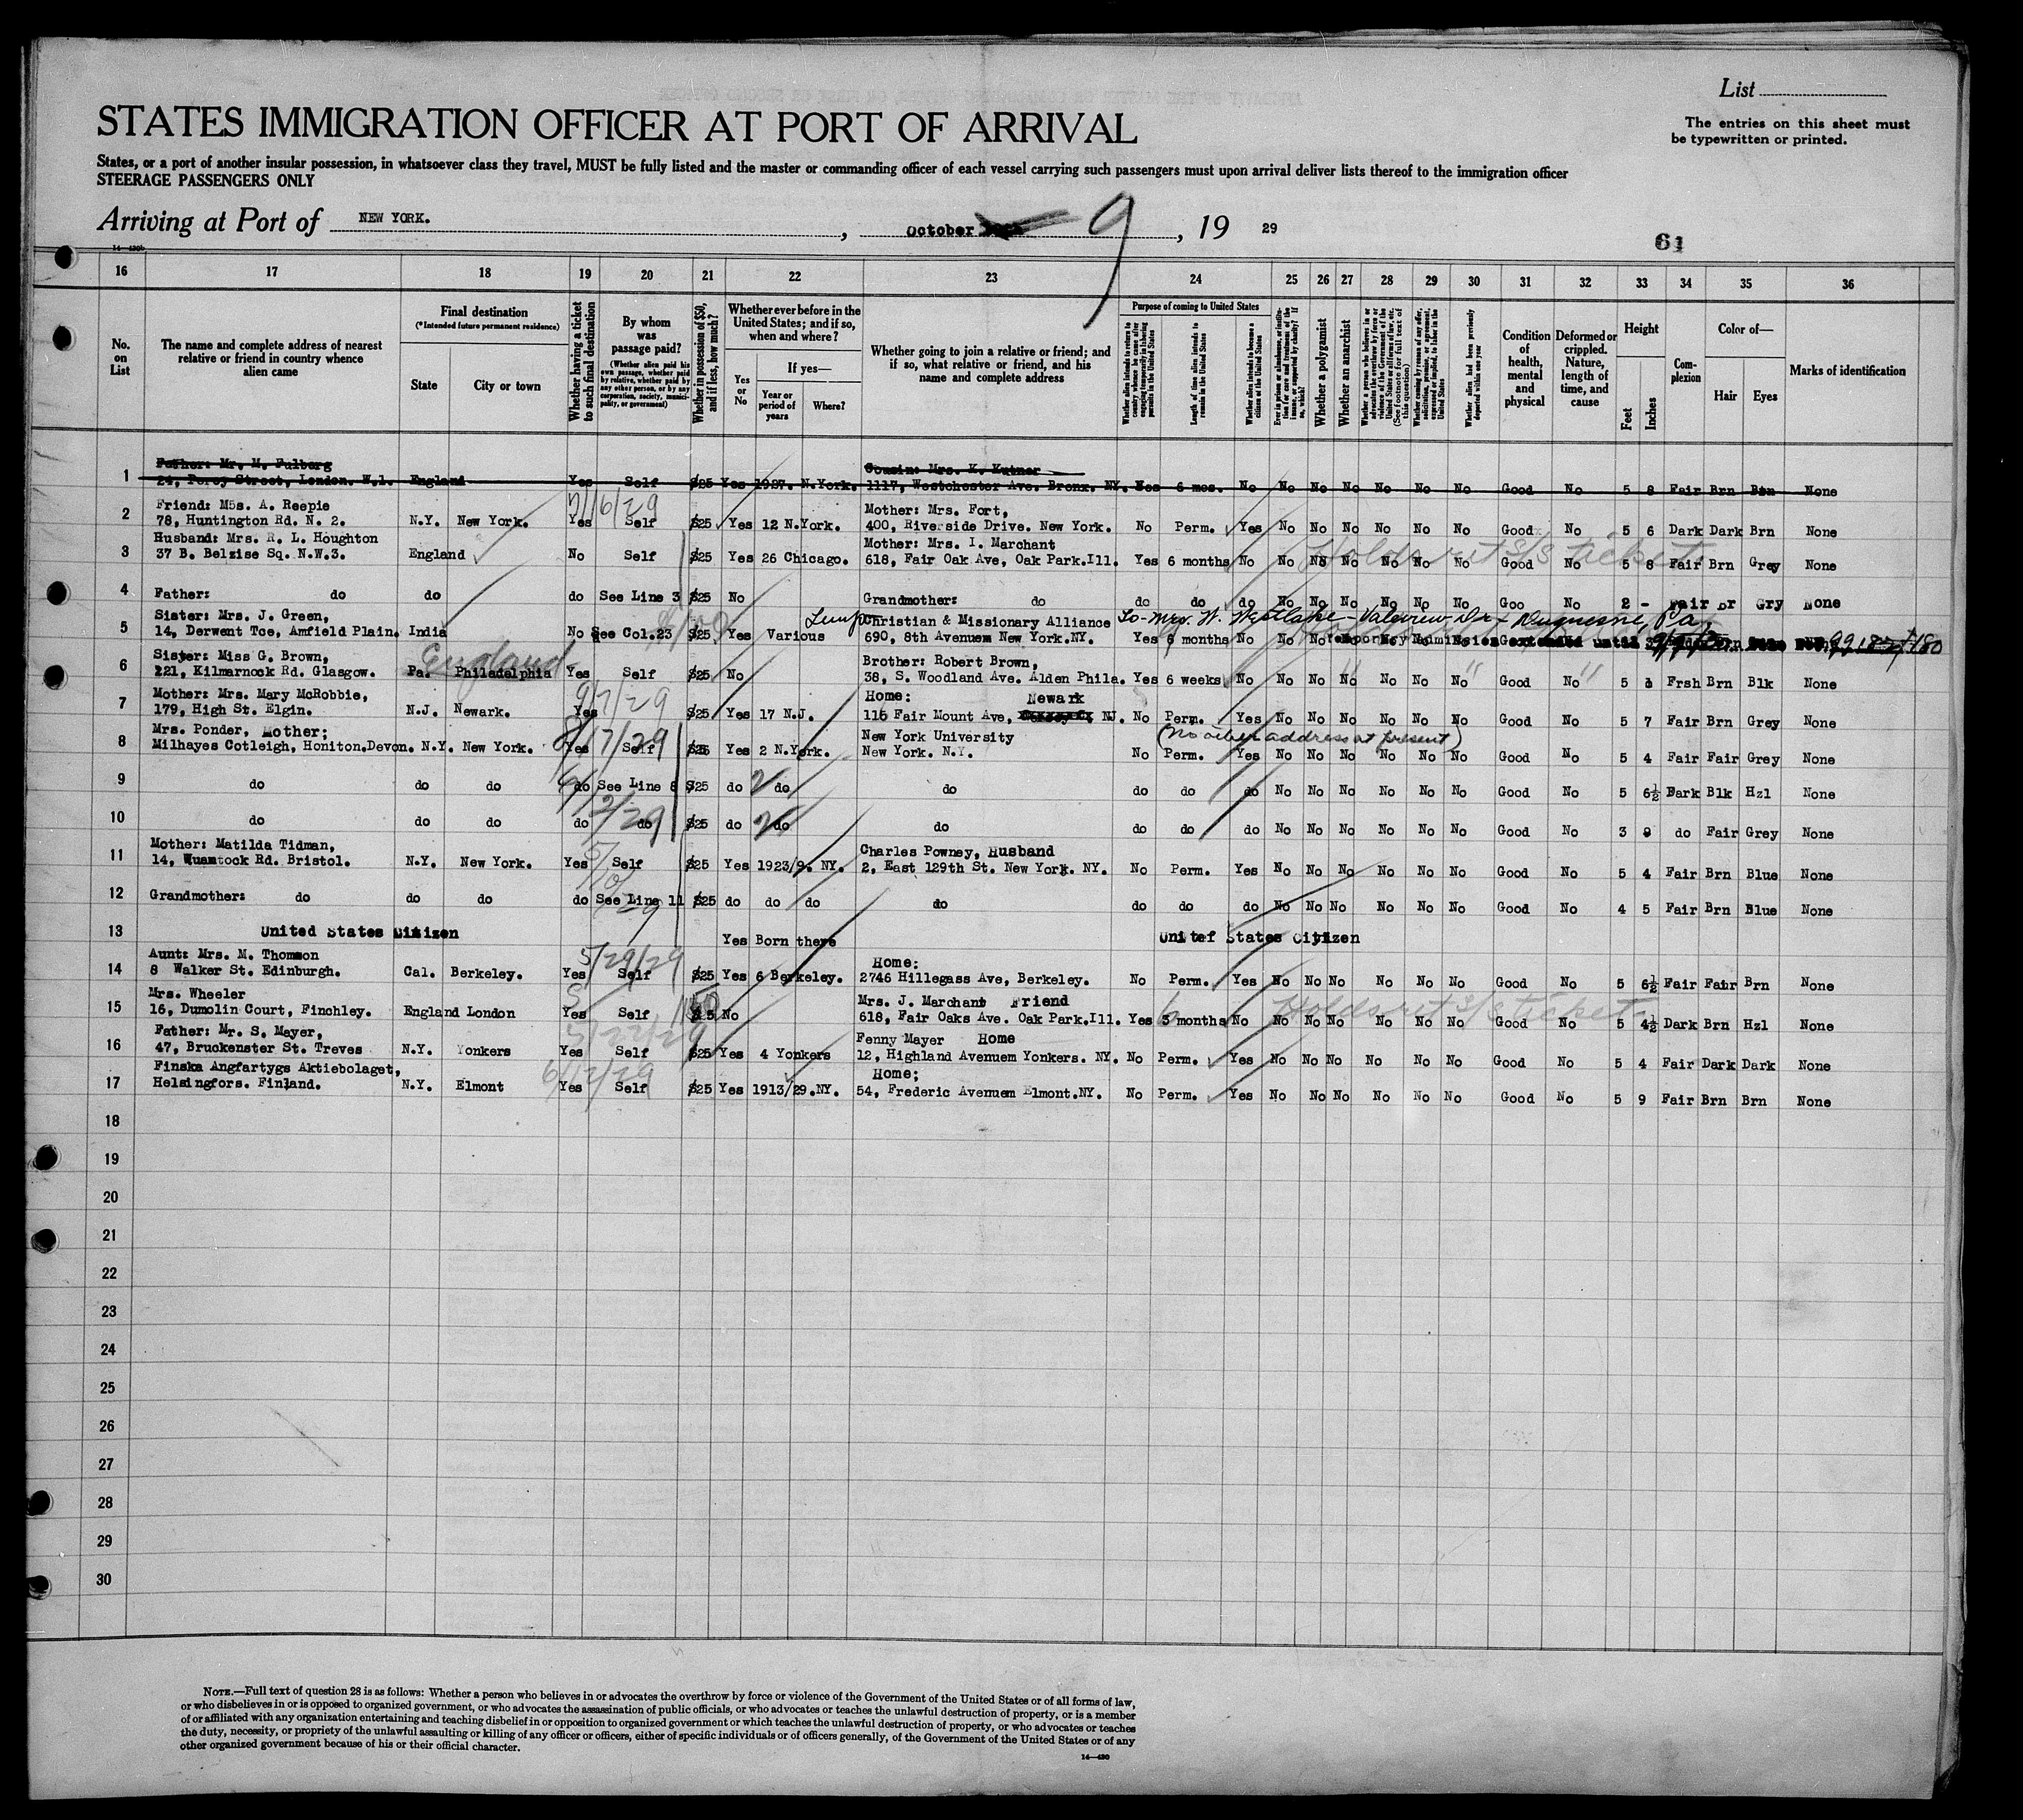 List
The entries on this sheet must
be typewritten or printed.
STATES IMMIGRATION OFFICER AT PORT OF ARRIVAL
States, or a port of another insular possession, in whatsoever class they travel, MUST be fully listed and the master or commanding officer of each vessel carrying such passengers must upon arrival deliver lists thereof to the immigration officer
STEERAGE PASSENGERS ONLY
Arriving at Port of NEW YORK. , October 9 , 19 29
61
16 17 18 19 20 21 22 23 24 25 26 27 28 29 30 31 32 33 34 35 36
No. on List
The name and complete address of nearest relative or friend in country whence alien came
Final destination
(*Intended future permanent residence)
State
City or town
Whether having a ticket to such final destination
By whom was passage paid?
(Whether alien paid his own passage, whether paid by relative, whether paid by any other person, or by any corporation, society, municipality, or government)
Whether in possession of $50, and if less, how much?
Whether ever before in the United States; and if so, when and where?
Yes or No
If yes—
Year or period of years
Where?
Whether going to join a relative or friend; and if so, what relative or friend, and his name and complete address
Purpose of coming to United States
Length of time alien intends to remain in the United States
Whether a polygamist
Whether an anarchist
Condition of health, mental and physical
Deformed or crippled. Nature, length of time, and cause
Height
Feet
Inches
Complexion
Color of—
Hair
Eyes
Marks of identification
Father: Mr. M. Fulberg Cousin: Mrs. K. Kutner
1 24, Percy Street, London. W.1. England Yes Self $25 Yes 1927. N.York. 1117, Westchester Ave. Bronx. NY. Yes 6 mos. No No No No No No No Good No 5 8 Fair Brn Brn None
7/16/29
Friend: M5s. A. Reepie Mother: Mrs. Fort,
2 78, Huntington Rd. N. 2. N.Y. New York. Yes Self $25 Yes 12 N.York. 400, Riverside Drive. New York. No Perm. Yes No No No No No No Good No 5 6 Dark Dark Brn None
Husband: Mrs. R. L. Houghton Mother: Mrs. I. Marchant Holds ret s/s ticket
3 37 B. Belzise Sq. N.W.3. England No Self $25 Yes 26 Chicago. 618, Fair Oak Ave, Oak Park.Ill. Yes 6 months No No No No No No No Good No 5 8 Fair Brn Grey None
4 Father: do do do See Line 3 $25 No Grandmother: do do do do No No No No No No Goo No 2 - Fair Br Gry None
Sister: Mrs. J. Green, Christian & Missionary Alliance To- Mrs. W. Westlake - Valeview Dr. Duquesne, Pa.
5 14, Derwent Tce, Amfield Plain. India No See Col.23 $25 Yes Various 690, 8th Avenuem New York.NY. Yes 6 months No No No Temporary Admission extended until
Sister: Miss G. Brown, England Brother: Robert Brown,
6 221, Kilmarnock Rd. Glasgow. Pa. Philadelphia Yes Self $25 No 38, S. Woodland Ave. Alden Phila. Yes 6 weeks No No No No No No No Good No 5 3 Frsh Brn Blk None
Mother: Mrs. Mary McRobbie, 9/7/29 Home: Newark
7 179, High St. Elgin. N.J. Newark. Yes $25 Yes 17 N.J. 115 Fair Mount Ave, NJ. No Perm. Yes No No No No No No Good No 5 7 Fair Brn Grey None
Mrs. Ponder, Mother; New York University (No other address at present)
8 Milhayes Cotleigh, Honiton,Devon. N.Y. New York. Yes 8/17/29 Self $25 Yes 2 N.York. New York. N.Y. No Perm. Yes No No No No No No Good No 5 4 Fair Fair Grey None
9 do do do do See Line 8 $25 do 2 do do do do do No No No No No No Good No 5 6½ Dark Blk Hzl None
9/12/29
10 do do do do do $25 do 2 do do do do do No No No No No No Good No 3 9 do Fair Grey None
Mother: Matilda Tidman, Charles Powney, Husband
11 14, Quantock Rd. Bristol. N.Y. New York. Yes Self $25 Yes 1923/9. NY. 2, East 129th St. New York. NY. No Perm. Yes No No No No No No Good No 5 4 Fair Brn Blue None
5/10/29
12 Grandmother: do do do do See Line 11 $25 do do do do do do do No No No No No No Good No 4 5 Fair Brn Blue None
13 United States Citizen Yes Born there Unitef States Citizen
Aunt: Mrs. M. Thomson 5/29/29 Home:
14 8 Walker St. Edinburgh. Cal. Berkeley. Yes Self $25 Yes 6 Berkeley. 2746 Hillegass Ave, Berkeley. No Perm. Yes No No No No No No Good No 5 6½ Fair Fair Brn None
Mrs. Wheeler 150 Mrs. J. Marchant Friend Holds ret s/s ticket
15 16, Dumolin Court, Finchley. England London Yes Self $25 No 618, Fair Oaks Ave. Oak Park.Ill. Yes 6 3 months No No No No No No No Good No 5 4½ Dark Brn Hzl None
Father: Mr. S. Mayer, 5/22/29 Fenny Mayer Home
16 47, Bruckenster St. Treves N.Y. Yonkers Yes Self $25 Yes 4 Yonkers 12, Highland Avenuem Yonkers. NY. No Perm. Yes No No No No No No Good No 5 4 Fair Dark Dark None
Finska Angfartygs Aktiebolaget, 6/12/29 Home;
17 Helsingfors. Finland. N.Y. Elmont Yes Self $25 Yes 1913/29.NY. 54, Frederic Avenuem Elmont.NY. No Perm. Yes No No No No No No Good No 5 9 Fair Brn Brn None
18
19
20
21
22
23
24
25
26
27
28
29
30
NOTE.—Full text of question 28 is as follows: Whether a person who believes in or advocates the overthrow by force or violence of the Government of the United States or of all forms of law,
or who disbelieves in or is opposed to organized government, or who advocates the assassination of public officials, or who advocates or teaches the unlawful destruction of property, or is a member
of or affiliated with any organization entertaining and teaching disbelief in or opposition to organized government or which teaches the unlawful destruction of property, or who advocates or teaches
the duty, necessity, or propriety of the unlawful assaulting or killing of any officer or officers, either of specific individuals or of officers generally, of the Government of the United States or of any
other organized government because of his or their official character.
14—430